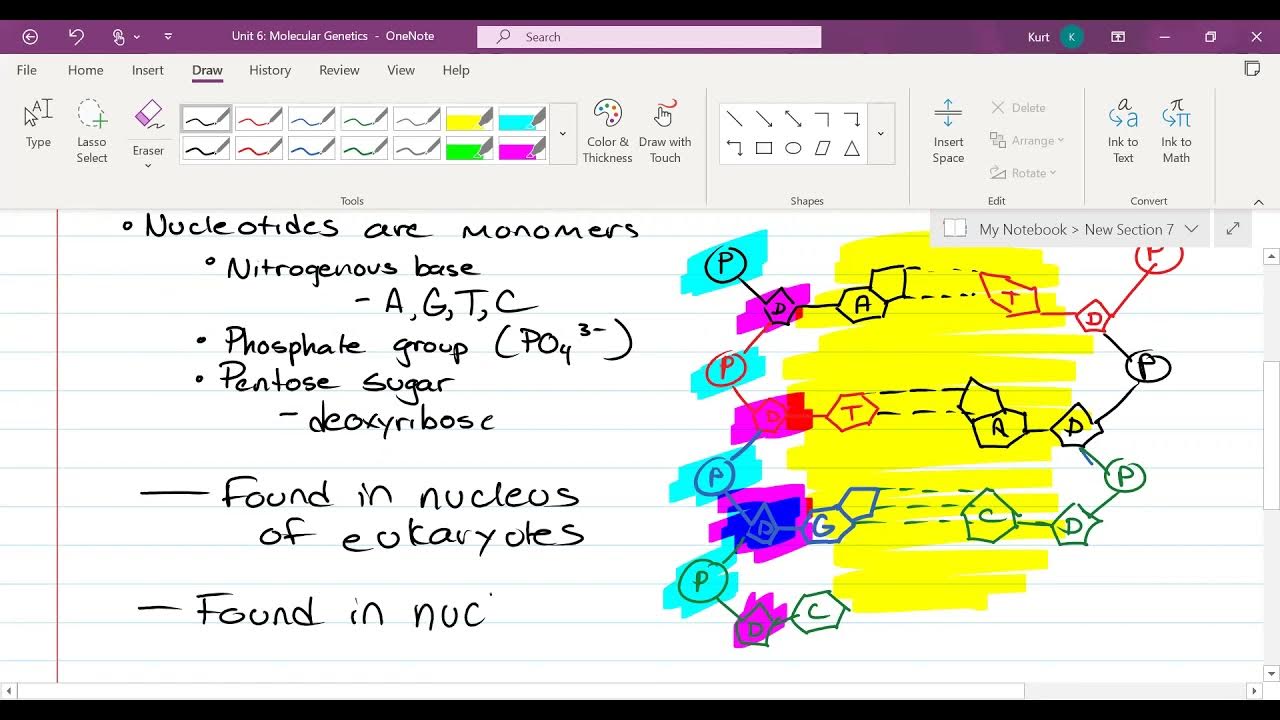 Unit 6: Molecular Genetics - OneNote
Search
Kurt K
File Home Insert Draw History Review View Help
Type
Lasso Select
Eraser
Color & Thickness
Draw with Touch
Insert Space
Delete
Arrange
Rotate
Ink to Text
Ink to Math
Tools Shapes Edit Convert
My Notebook > New Section 7
• Nucleotides are monomers
• Nitrogenous base
- A, G, T, C
• Phosphate group (PO₄³⁻)
• Pentose sugar
- deoxyribose
— Found in nucleus
of eukaryotes
— Found in nuc
P P
D A T D
P P
D T A D
P P
D G C D
P
D C